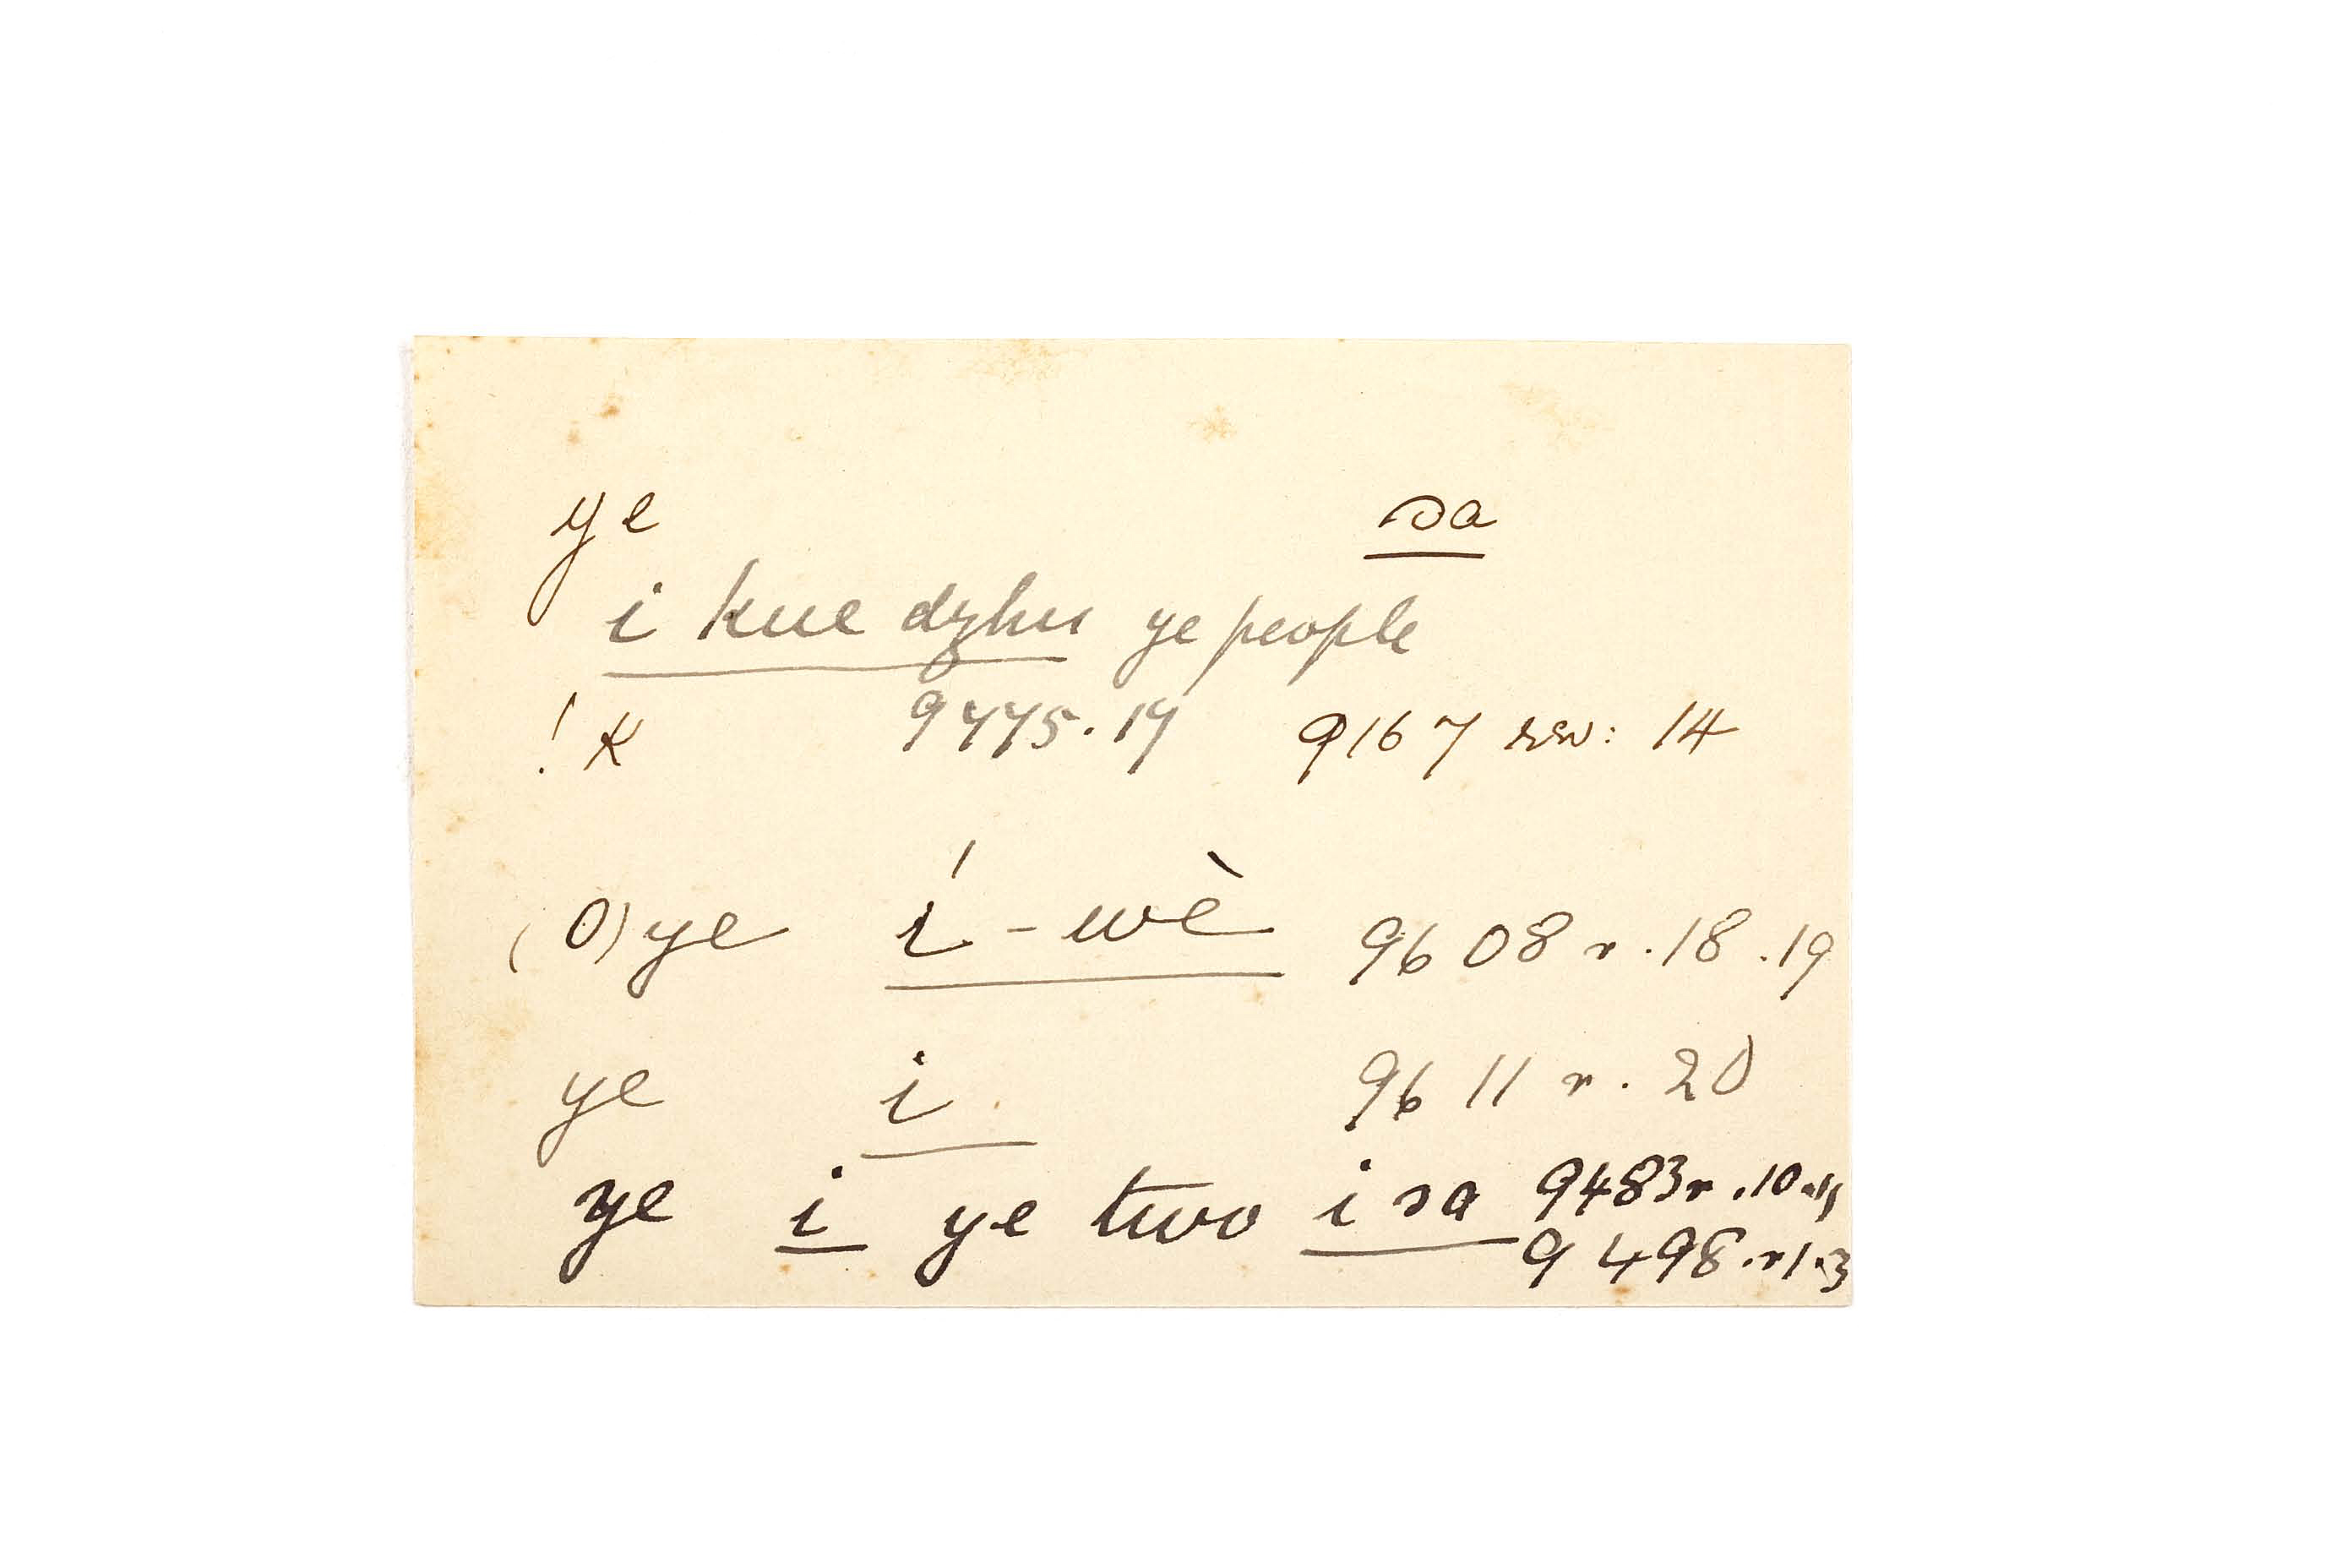 ye sa
i kue dzhu ye people
!k 9445.14 9167 rev: 14
(O) ye í-wè 9608 r. 18.19
ye i 9611 r. 20
ye i ye two i sa 9483 r. 10.11
9498. r 1.3